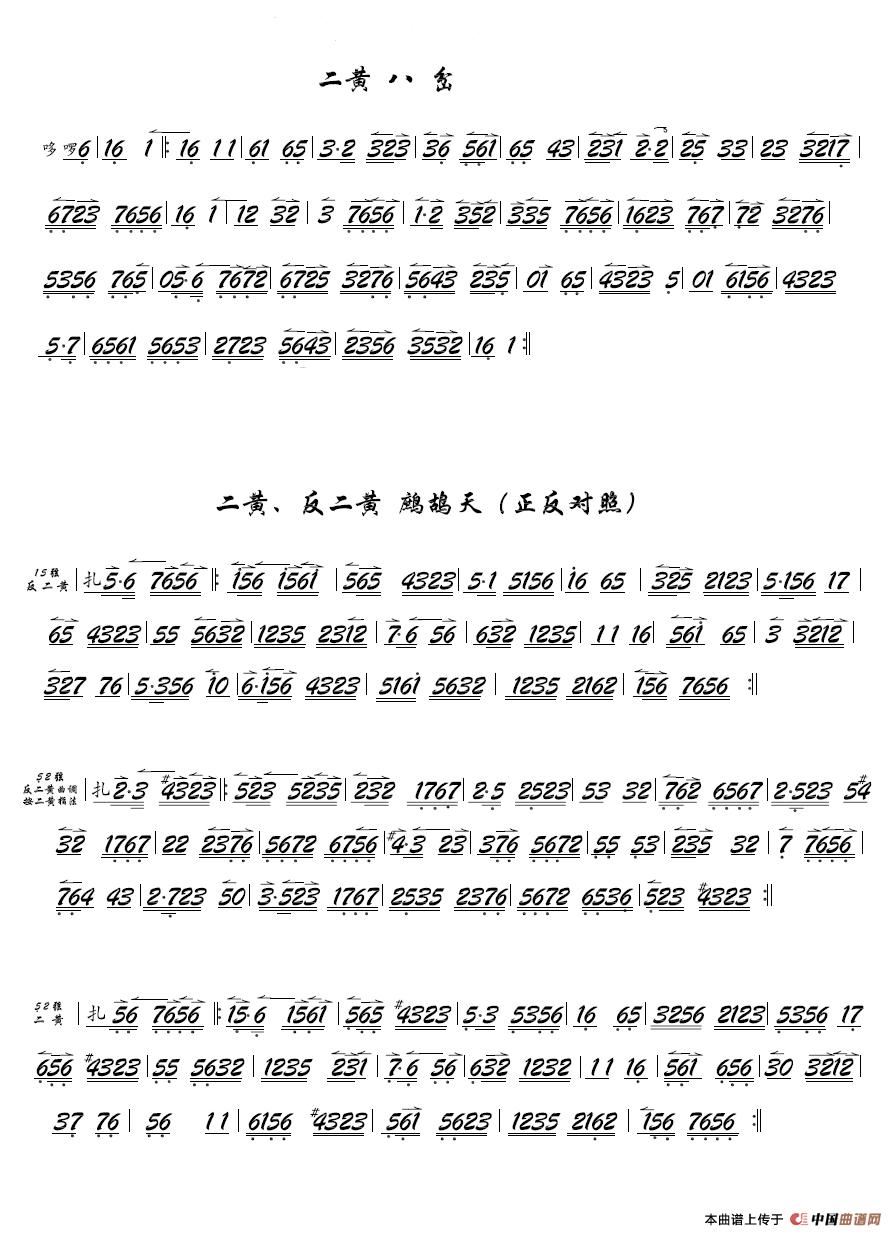 二黄 八 岔
哆 啰6|16 1‖:16 11|61 65|3·2 323|36 561|65 43|231 2·2|25 33|23 3217|
6723 7656|16 1|12 32|3 7656|1·2 352|335 7656|1623 767|72 3276|
5356 765|05·6 7672|6725 3276|5643 235|01 65|4323 5|01 6156|4323
5·7|6561 5653|2723 5643|2356 3532|16 1:‖
二黄、反二黄 鹧鸪天（正反对照）
15弦
反二黄 |扎5·6 7656‖:156 1561|565 4323|5·1 5156|16 65|325 2123|5·156 17|
65 4323|55 5632|1235 2312|7·6 56|632 1235|11 16|561 65|3 3212|
327 76|5·356 10|6·156 4323|5161 5632|1235 2162|156 7656 :‖
52弦
反二黄曲调
按二黄指法 |扎2·3 #4323‖:523 5235|232 1767|2·5 2523|53 32|762 6567|2·523 5#4
32 1767|22 2376|5672 6756|#4·3 23|376 5672|55 53|235 32|7 7656|
764 43|2·723 50|3·523 1767|2535 2376|5672 6536|523 #4323 :‖
52弦
二黄 |扎 56 7656‖:15·6 1561|565 #4323|5·3 5356|16 65|3256 2123|5356 17
656 #4323|55 5632|1235 231|7·6 56|632 1232|11 16|561 656|30 3212|
37 76|56 11|6156 #4323|561 5623|1235 2162|156 7656 :‖
本曲谱上传于 中国曲谱网